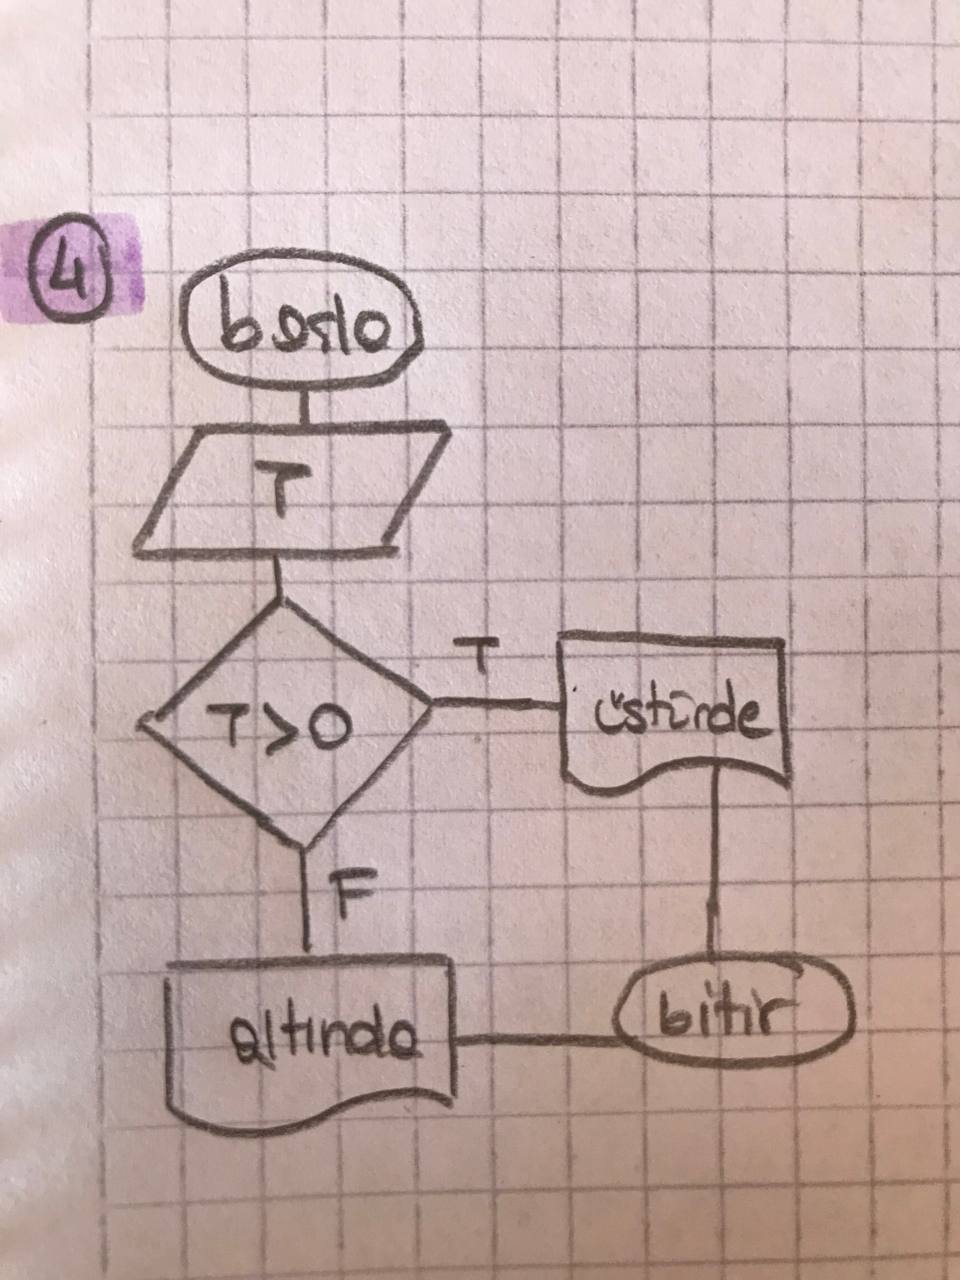 4
başla
T
T>0
T
üstünde
F
altında
bitir